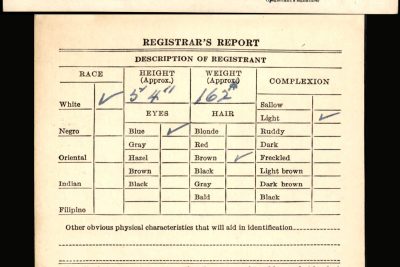 REGISTRAR'S REPORT
DESCRIPTION OF REGISTRANT
RACE
HEIGHT (Approx.)
WEIGHT (Approx.)
COMPLEXION
5' 4"
162#
White ✓
Sallow
EYES
HAIR
Light ✓
Negro
Blue ✓
Blonde
Ruddy
Gray
Red
Dark
Oriental
Hazel
Brown ✓
Freckled
Brown
Black
Light brown
Indian
Black
Gray
Dark brown
Bald
Black
Filipino
Other obvious physical characteristics that will aid in identification